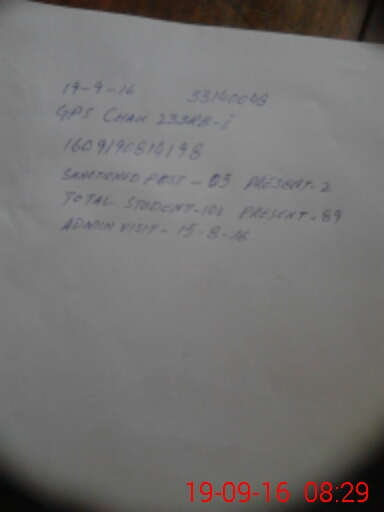 19-9-16 33140048
GPS CHAK 233RB-I
1609190814198
SANCTIONED POST - 03 PRESENT - 2
TOTAL STUDENT - 101 PRESENT - 89
ADMIN VISIT - 15-8-16
19-09-16 08:29